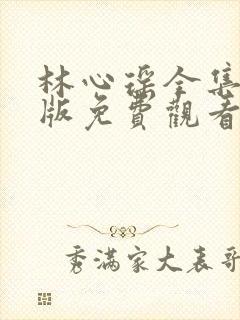 林心瑶全集
版免費觀看
秀滿家大表哥